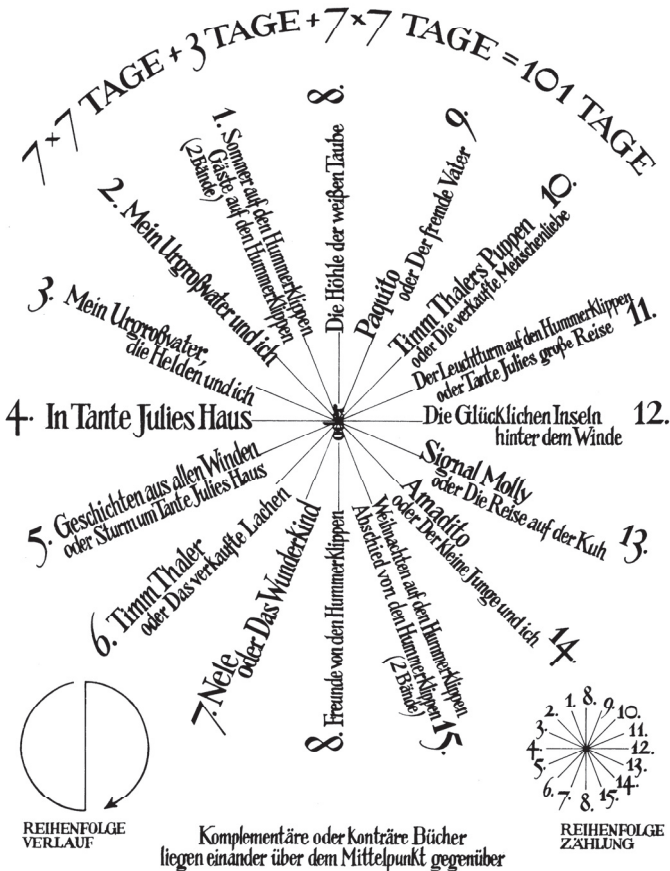 7×7 TAGE + 3 TAGE + 7×7 TAGE = 101 TAGE
1. Sommer auf den Hummerklippen
Gäste auf den Hummerklippen
(2 Bände)
2. Mein Urgroßvater und ich
3. Mein Urgroßvater,
die Helden und ich
4. In Tante Julies Haus
5. Geschichten aus allen Winden
oder Sturm um Tante Julies Haus
6. Timm Thaler
oder Das verkaufte Lachen
7. Nele
oder Das Wunderkind
8. Freunde von den Hummerklippen
8.
Die Höhle der weißen Taube
9.
Paquito
oder Der fremde Vater
10.
Timm Thalers Puppen
oder Die verkaufte Menschenliebe
11.
Der Leuchtturm auf den Hummerklippen
oder Tante Julies große Reise
Die Glücklichen Inseln 12.
hinter dem Winde
Signal Molly
oder Die Reise auf der Kuh
13.
Amadito
oder Der kleine Junge und ich
14.
Weihnachten auf den Hummerklippen
Abschied von den Hummerklippen
(2 Bände)
15.
oder
REIHENFOLGE
VERLAUF
1. 8. 9.
2. 10.
3. 11.
4. 12.
5. 13.
6. 14.
7. 8. 15.
REIHENFOLGE
ZÄHLUNG
Komplementäre oder konträre Bücher
liegen einander über dem Mittelpunkt gegenüber